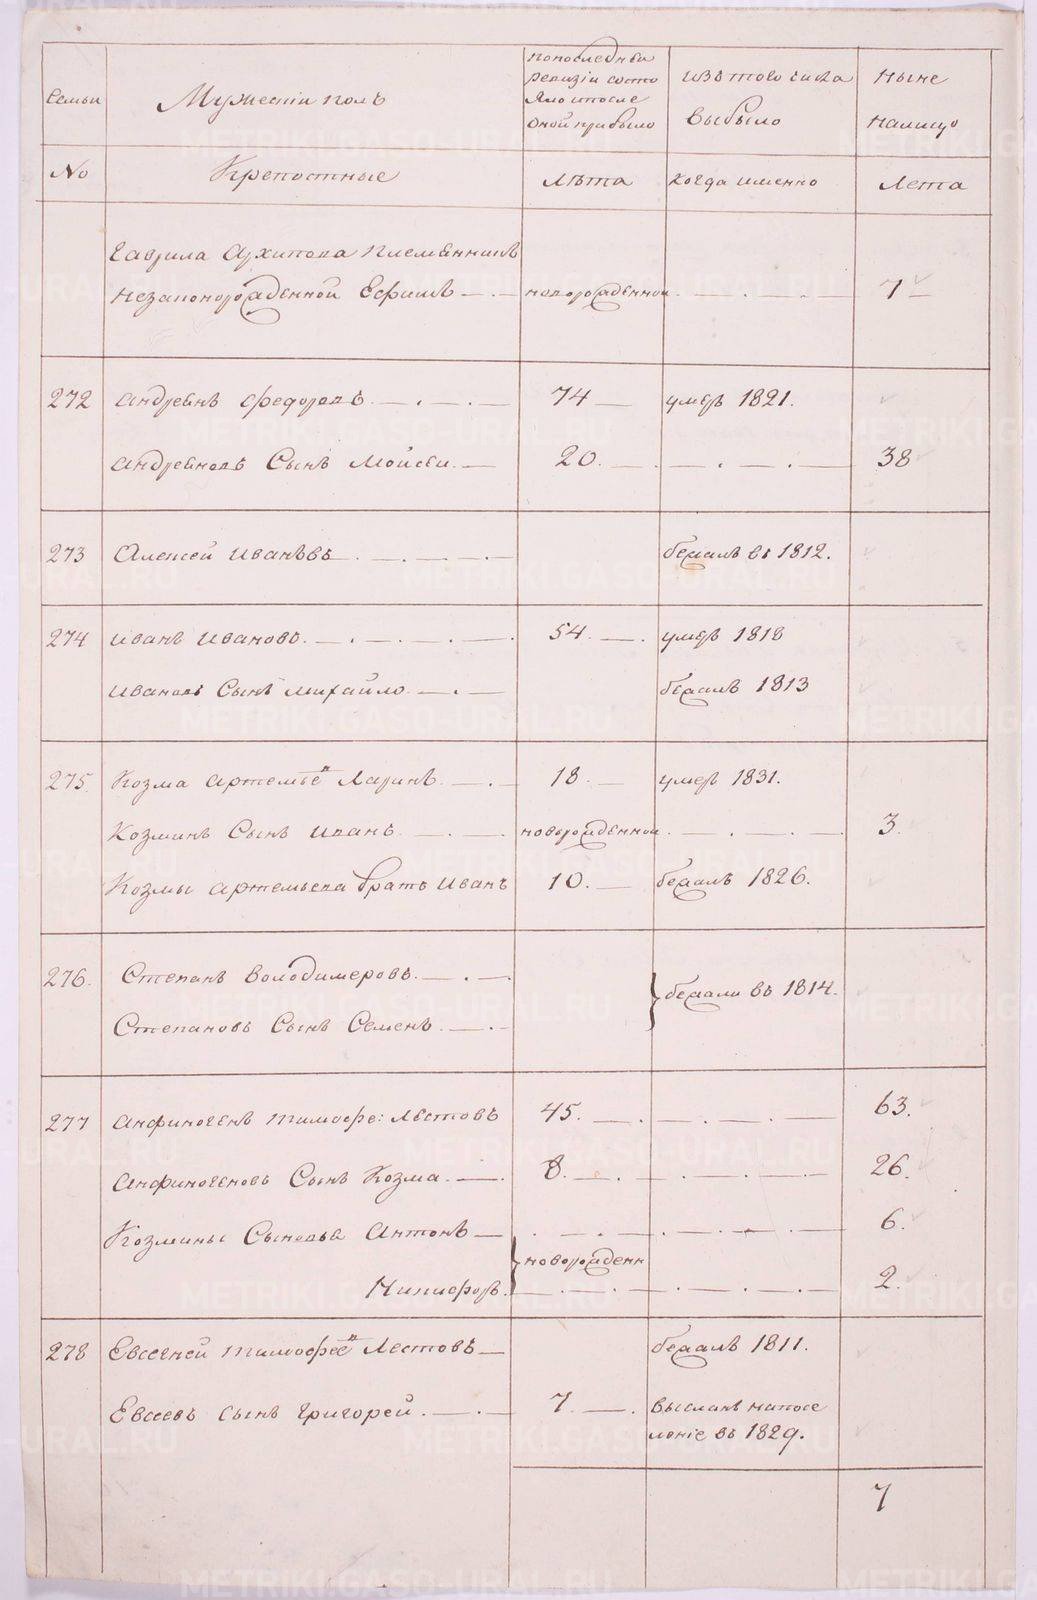 Семьи
Мужескiй полъ
Попоследней
ревизiи состо
яло ипосле
оной прибыло
изъ того числа
выбыло
Ныне
налицо
No
Крепостные
Лѣта
когда именно
Лета
Гаврила Архипова племянникъ
незаконорожденной Ефимъ новорожденной 1
272 Андреянъ Федоровъ 74 умеръ 1821.
Андреяновъ Сынъ Мойсей 20. 38
273 Алексей Иванъвъ бежалъ въ 1812.
274 Иванъ Ивановъ 54. умеръ 1818
Ивановъ Сынъ Михайло бежалъ 1813
275. Козма Артемьевъ Ларинъ 18 умеръ 1831.
Козминъ Сынъ Иванъ новорожденной 3.
Козмы Артемьева братъ Иванъ 10. бежалъ 1826.
276. Степанъ Володимеровъ
бежали въ 1814.
Степановъ Сынъ Семенъ
277 Анфиногенъ Тимофе: Лестовъ 45. 63.
Анфиногеновъ Сынъ Козма 8. 26.
Козмины Сыновья Антонъ 6.
новорожденн
Никифоръ 2.
278 Евсегней Тимофеевъ Лестовъ бежалъ 1811.
Евсеевъ сынъ Григорей 7 высланъ напосе
ленiе въ 1829.
7
METRIKI.GASO-URAL.RU